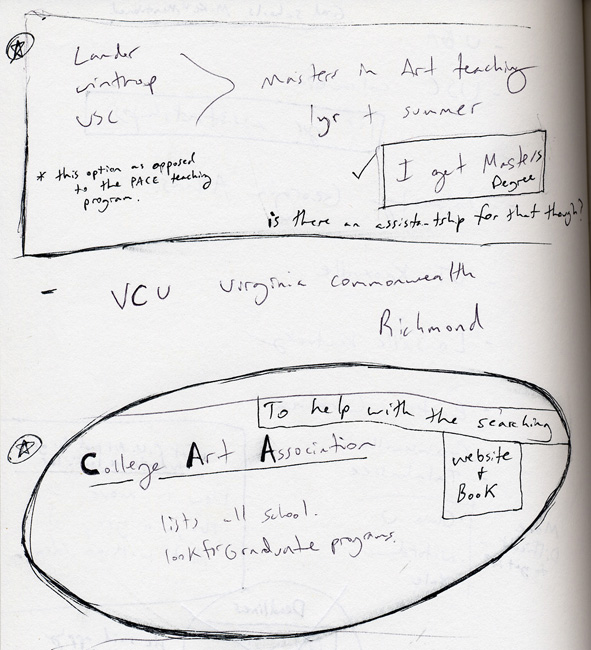 Lander
winthrop
USC
Masters in Art teaching
1yr + summer
* this option as opposed
to the PACE teaching
program.
✓ I get Masters
Degree
is there an assistantship for that though?
- VCU Virginia commonwealth
Richmond
To help with the searching
College Art Association
website
+
BooK
lists all school.
look for Graduate programs.